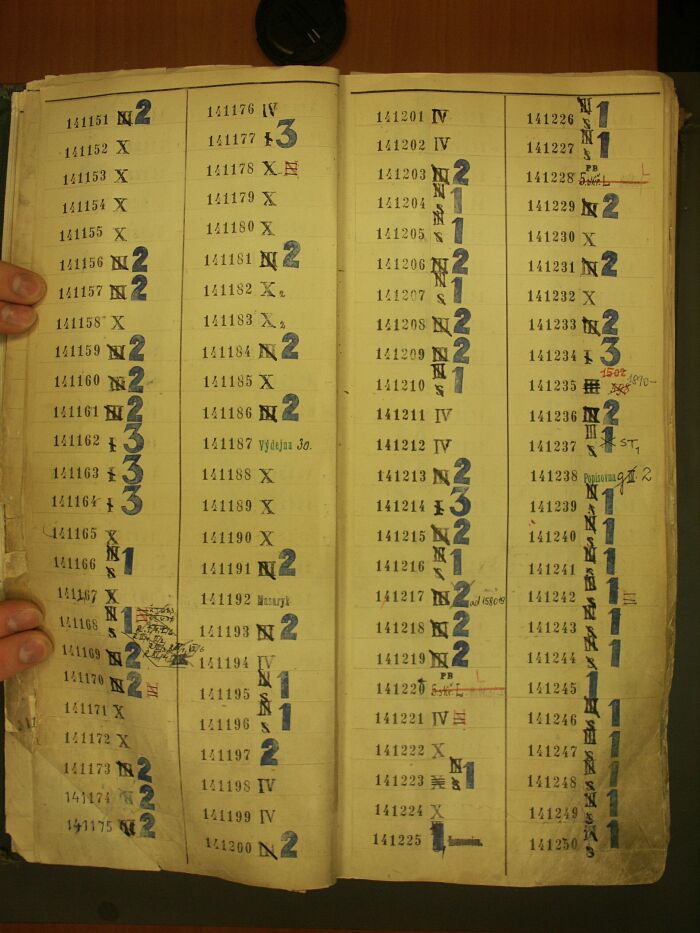 141151 2
141152 X
141153 X
141154 X
141155 X
141156 2
141157 2
141158 X
141159 2
141160 2
141161 2
141162 I 3
141163 I 3
141164 I 3
141165 X
141166 N s 1
141167 X
141168 N s 1
141169 2
141170 2 III
141171 X
141172 X
141173 2
141174 2
141175 2
141176 IV
141177 I 3
141178 X III
141179 X
141180 X
141181 2
141182 X 2
141183 X 2
141184 2
141185 X
141186 2
141187 Výdejna 30.
141188 X
141189 X
141190 X
141191 2
141192 Masaryk
141193 2
141194 IV
141195 N s 1
141196 N s 1
141197 2
141198 IV
141199 IV
141200 2
141201 IV
141202 IV
141203 2
141204 N s 1
141205 N s 1
141206 2
141207 N s 1
141208 2
141209 2
141210 N s 1
141211 IV
141212 IV
141213 2
141214 I 3
141215 2
141216 N s 1
141217 2 ad 158019
141218 2
141219 2
141220 PB 5.skř.L L
141221 IV III
141222 X
141223 N s 1
141224 X
141225 1
141226 N s 1
141227 N s 1
141228 PB 5.skř.L L
141229 2
141230 X
141231 2
141232 X
141233 2
141234 I 3
141235 1502 1890-
141236 2
141237 III s 1 ST1
141238 Popisovna g II. 2
141239 N s 1
141240 N s 1
141241 N s 1
141242 N s 1 III
141243 N s 1
141244 N s 1
141245 1
141246 N s 1
141247 N s 1
141248 N s 1
141249 N s 1
141250 N s 1